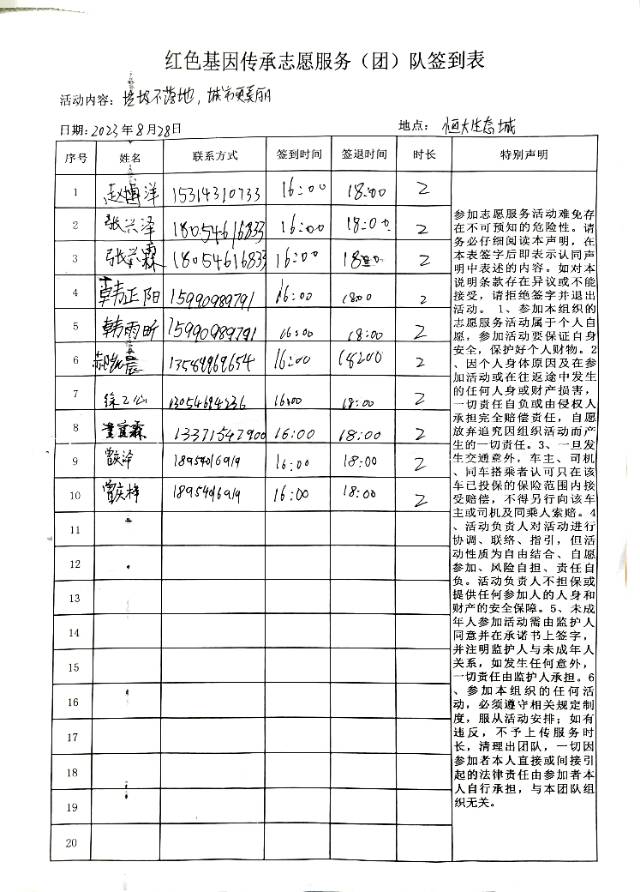 红色基因传承志愿服务（团）队签到表
活动内容：垃圾不落地，城市更美丽
日期：2023年8月28日 地点：恒大生态城
序号 姓名 联系方式 签到时间 签退时间 时长 特别声明
1 赵博洋 15314310733 16:00 18:00 2
2 张兴泽 18054616833 16:00 18:00 2
3 张兴霖 18054616833 16:00 18:00 2
4 韩正阳 15990989791 16:00 1800 2
5 韩雨昕 15990989791 16:00 18:00 2
6 13589968654 16:00 18:00 2
7 16:00 18:00 2
8 宜霖 13371547900 16:00 18:00 2
9 泽 16:00 18:00 2
10 16:00 18:00 2
11
12
13
14
15
16
17
18
19
20
参加志愿服务活动难免存
在不可预知的危险性。请
务必仔细阅读本声明，在
本表签字后即表示认同声
明中表述的内容。如对本
说明条款存在异议或不能
接受，请拒绝签字并退出
活动。 1、参加本组织的
志愿服务活动属于个人自
愿，参加活动要保证自身
安全，保护好个人财物。2
、因个人身体原因及在参
加活动或在往返途中发生
的任何人身或财产损害，
一切责任自负或由侵权人
承担完全赔偿责任，自愿
放弃追究因组织活动而产
生的一切责任。3、一旦发
生交通意外，车主、司机
、同车搭乘者认可只在该
车已投保的保险范围内接
受赔偿，不得另行向该车
主或司机及同乘人索赔。4
、活动负责人对活动进行
协调、联络、指引，但活
动性质为自由结合、自愿
参加、风险自担、责任自
负。活动负责人不担保或
提供任何参加人的人身和
财产的安全保障。5、未成
年人参加活动需由监护人
同意并在承诺书上签字，
并注明监护人与未成年人
关系，如发生任何意外，
一切责任由监护人承担。6
、参加本组织的任何活
动，必须遵守相关规定制
度，服从活动安排；如有
违反，不予上传服务时
长，清理出团队，一切因
参加者本人直接或间接引
起的法律责任由参加者本
人自行承担，与本团队组
织无关。